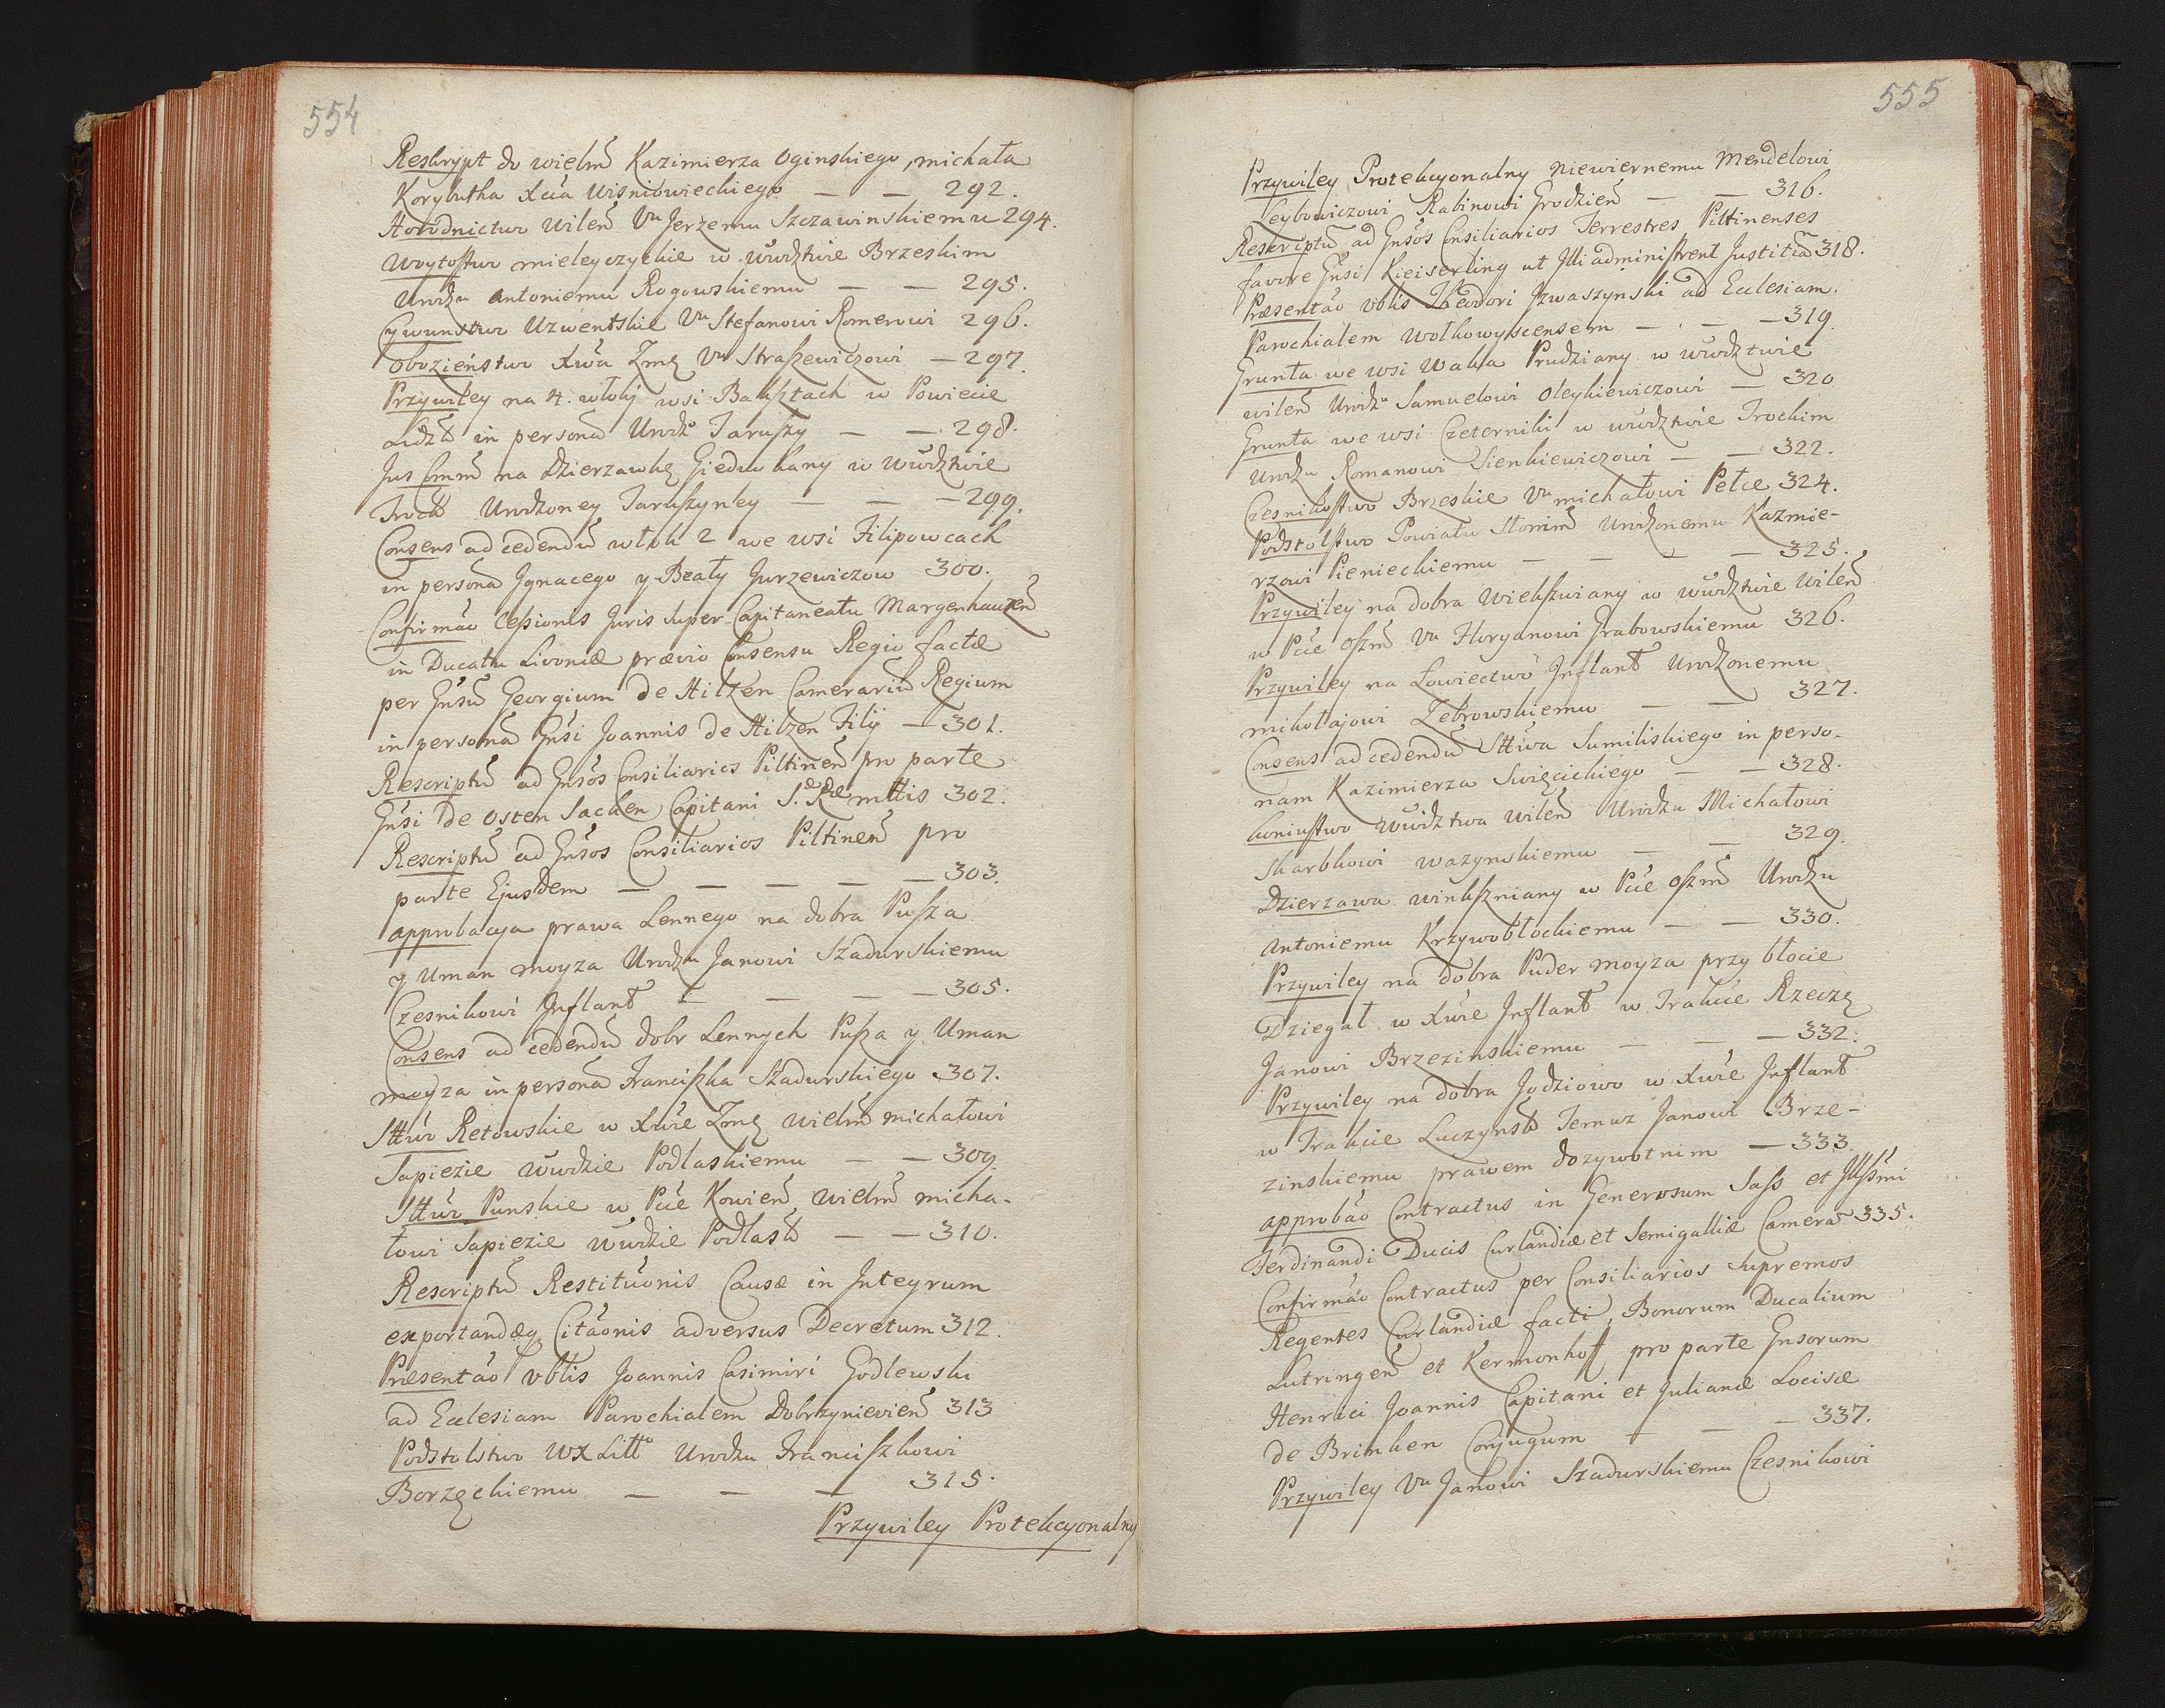 554
Reskrypt do wielm̃ Kazimierza Oginskiego, michała
Korybutha Xcia Wisniowieckiego — — 292.
Horodnictwo Wileñ Vu Jerzemu Szczawinskiemu 294.
Woytostwo mieleyczyckie w wwdztwie Brzeskim
Urodzu Antoniemu Rogowskiemu — — 295.
Cywunstwo Uzwentskie Vu Stefanowi Romerowi 296.
Obozieństwo Xwa Zmg Vu Straszewiczowi — 297.
Przywiley na 4. włoki wsi Baksztach w Powiecie
Lidzk in persoñ Urodz Jarußy — — 298.
Jus Com̃ na Dzierzawkę Giedukany w wwdztwie
Trock Urodzoney Jarußynley — — — 299.
Consens ad cedendũ włok 2 we wsi Filipowcach
in personã Ignacego y Beaty Jurzewiczow 300.
Confirmão Cessionis Juris super Capitaneatu Margenhauzeñ
in Ducatu Livoniæ prævio Consensu Regio factæ
per Gnsũ Georgium de Hilzen Camerariũ Regium
in personã Gnsi Joannis de Hilzen Filij — 301.
Rescriptũ ad Gnsos Consiliarios Piltineñ pro parte
Gnsi de Osten Sacken Capitani S. Ræ mttis 302.
Rescriptũ ad Gnsos Consiliarios Piltineñ pro
parte Ejusdem — — — — — 303.
Approbacya prawa Lennego na dobra Pusza
y Uman moyza Urodzu Janowi Szadurskiemu
Czesnikowi Inflant — — — — 305.
Consens ad cedendũ dobr Lennych Pusza y Uman
moyza in personã Franciszka Szadurskiego 307.
Sttwo Retowskie w Xwie Zmg wielm̃ michałowi
Sapiezie wwdzie Podlaskiemu — — 309.
Sttwo Punskie w Pcie Kowieñ wielm̃ micha-
łowi Sapiezie wwdzie Podlask — — 310.
Rescriptũ Restituonis Causæ in Integrum
exportandæq Citaonis adversus Decretum 312.
Præsentão Vblis Joannis Casimiri Godlewski
ad Ecclesiam Parochialem Dobrzynievieñ 313
Podstolstwo WX Litt Urodzu Franciszkowi
Borzęckiemu — — — 315.
Przywiley Protekcyonalny
555
Przywiley Protekcyonalny Niewiernemu Mendelowi
Leybowiczowi Rabinowi Grodzieñ — — 316.
Rescriptũ ad Gnsos Consiliarios Terrestres Piltinenses
favore Gnsi Kieiserling ut Illi administrent Justitiã 318.
Præsentão Vblis Theodori Jwaszynski ad Ecclesiam
Parochialem Wołkowyscensem — — — 319.
Grunta we wsi Waka Prudziany w wwdztwie
wileñ Urodzu Samuelowi Oleykiewiczowi — 320
Grunta we wsi Czeterniki w wwdztwie Trockim
Urodzu Romanowi Sienkiewiczowi — — 322.
Czesnikostwo Brzeskie Vu michałowi Pełce 324.
Podstolstwo Powiatu Słonim̃ Urodzonemu Kazmie-
rzowi Pieniechiemu — — — — 325.
Przywiley na dobra Wiekszwiany w wwdztwie Wileñ
w Pcie Oszm̃ Vu Floryanowi Grabowskiemu 326.
Przywiley na Łowiectwo Inflant Urodzonemu
mikołajowi Zebrowskiemu — — 327.
Consens ad cedendũ Sttwa Sumiliskiego in perso-
nam Kazimierza Swięcickiego — — 328.
Koniustwo wwdztwa wileñ Urodzu Michałowi
Skarbkowi Wazynskiemu — — 329.
Dzierzawa winkszniany w Pcie Oszm̃ Urodzu
Antoniemu Krzywobłockiemu — — 330.
Przywiley na dobra Puder moyza przy błocie
Dziegat w Xwie Inflant w Trakcie Rzeczg
Janowi Brzezinskiemu — — — 332.
Przywiley na dobra Jodziowo w Xwie Inflant
w Trakcie Luczynsk Temuz Janowi Brze-
zinskiemu prawem dozywotnim — 333.
Approbão Contractus in Generosum Sass et Jllssmi
Ferdinandi Ducis Curlandiæ et Semigalliæ Cameras 335.
Confirmão Contractus per Consiliarios Supremos
Regentes Curlandiæ facti, Bonorum Ducalium
Lutringeñ et Kermonhoff pro parte Gnsorum
Henrici Joannis Capitani et Julianæ Locisæ
de Brinken Conjugum — — — 337.
Przywiley Vu Janowi Szadurskiemu Czesnikowi